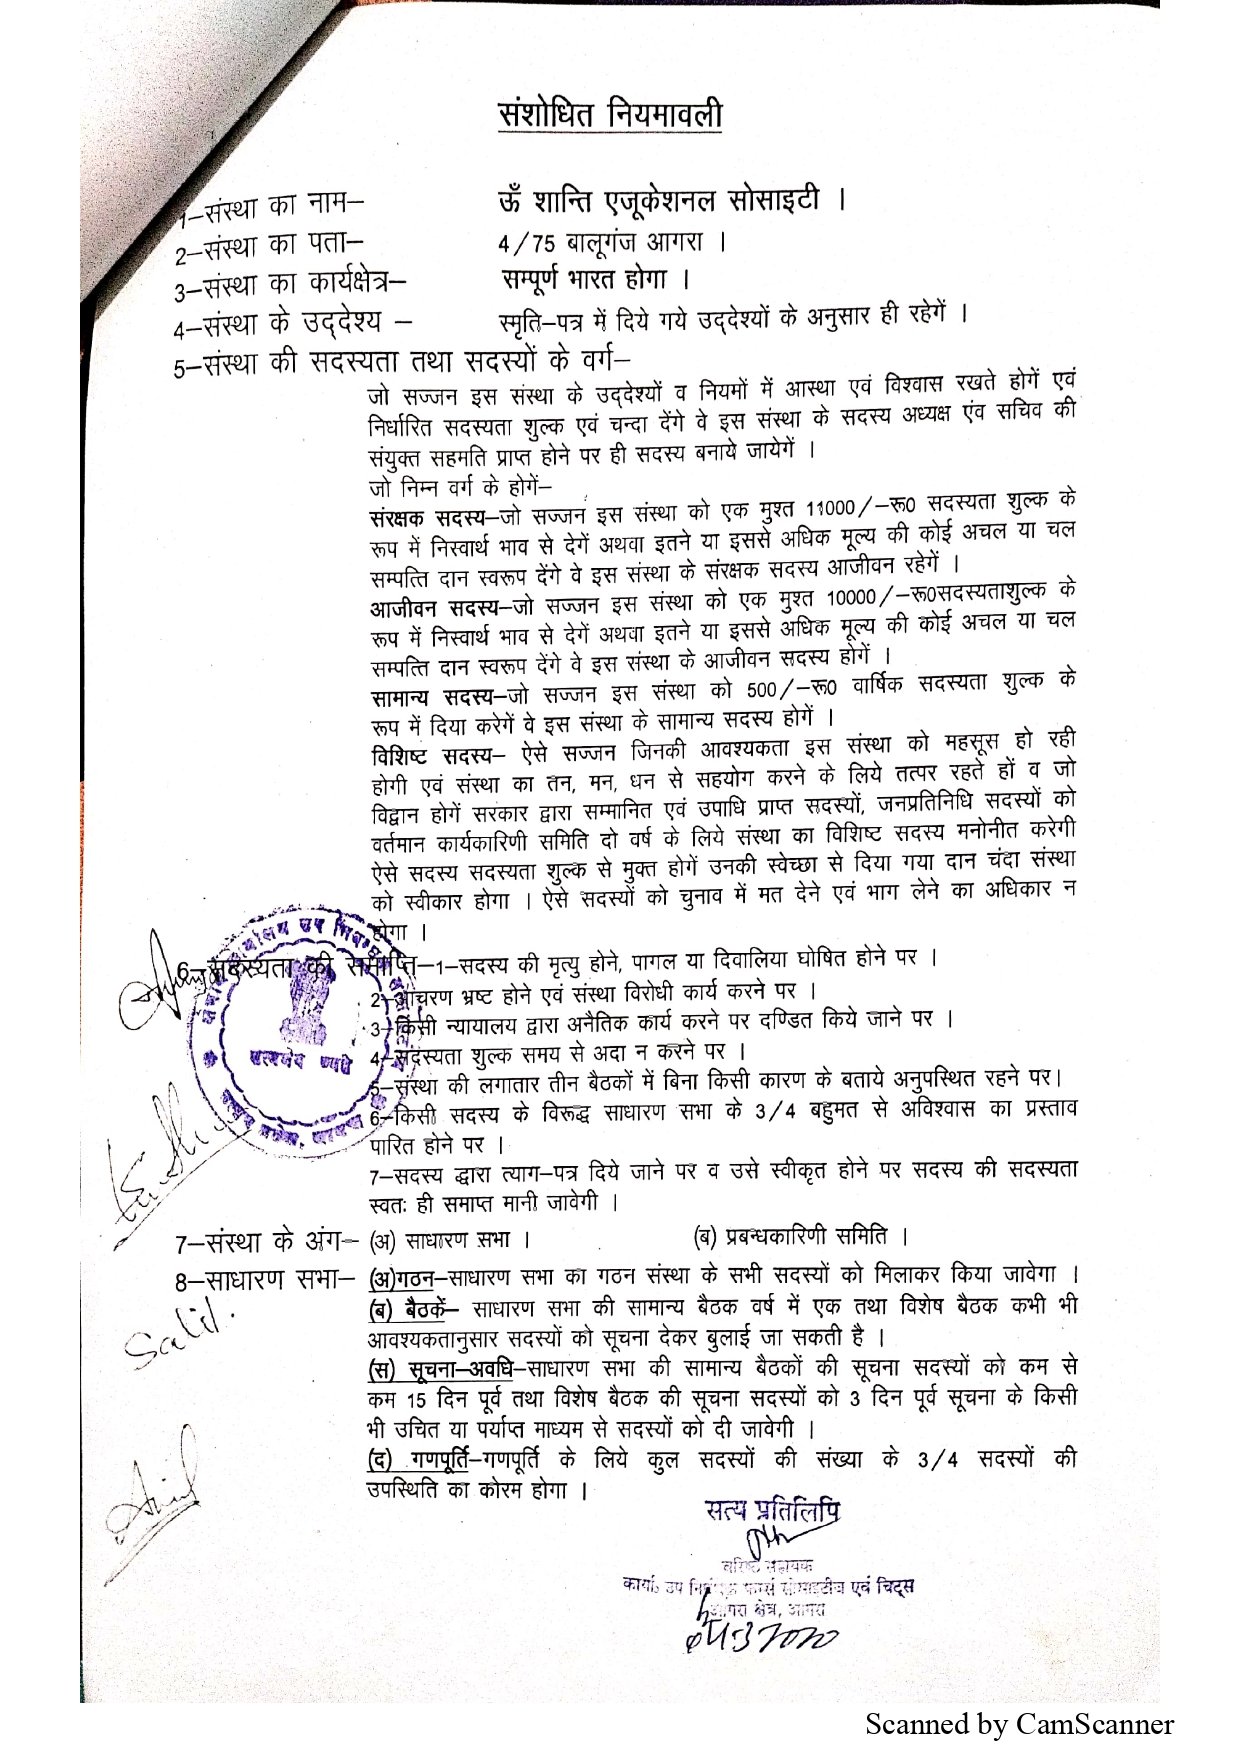 संशोधित नियमावली
1–संस्था का नाम– ऊँ शान्ति एजूकेशनल सोसाइटी ।
2–संस्था का पता– 4/75 बालूगंज आगरा ।
3–संस्था का कार्यक्षेत्र– सम्पूर्ण भारत होगा ।
4–संस्था के उद्देश्य – स्मृति–पत्र में दिये गये उद्देश्यों के अनुसार ही रहेगें ।
5–संस्था की सदस्यता तथा सदस्यों के वर्ग–
जो सज्जन इस संस्था के उद्देश्यों व नियमों में आस्था एवं विश्वास रखते होगें एवं
निर्धारित सदस्यता शुल्क एवं चन्दा देंगे वे इस संस्था के सदस्य अध्यक्ष एंव सचिव की
संयुक्त सहमति प्राप्त होने पर ही सदस्य बनाये जायेगें ।
जो निम्न वर्ग के होगें–
संरक्षक सदस्य–जो सज्जन इस संस्था को एक मुश्त 11000/–रू0 सदस्यता शुल्क के
रूप में निस्वार्थ भाव से देगें अथवा इतने या इससे अधिक मूल्य की कोई अचल या चल
सम्पत्ति दान स्वरूप देंगे वे इस संस्था के संरक्षक सदस्य आजीवन रहेगें ।
आजीवन सदस्य–जो सज्जन इस संस्था को एक मुश्त 10000/–रू0सदस्यताशुल्क के
रूप में निस्वार्थ भाव से देगें अथवा इतने या इससे अधिक मूल्य की कोई अचल या चल
सम्पत्ति दान स्वरूप देंगे वे इस संस्था के आजीवन सदस्य होगें ।
सामान्य सदस्य–जो सज्जन इस संस्था को 500/–रू0 वार्षिक सदस्यता शुल्क के
रूप में दिया करेगें वे इस संस्था के सामान्य सदस्य होगें ।
विशिष्ट सदस्य– ऐसे सज्जन जिनकी आवश्यकता इस संस्था को महसूस हो रही
होगी एवं संस्था का तन, मन, धन से सहयोग करने के लिये तत्पर रहते हों व जो
विद्वान होगें सरकार द्वारा सम्मानित एवं उपाधि प्राप्त सदस्यों, जनप्रतिनिधि सदस्यों को
वर्तमान कार्यकारिणी समिति दो वर्ष के लिये संस्था का विशिष्ट सदस्य मनोनीत करेगी
ऐसे सदस्य सदस्यता शुल्क से मुक्त होगें उनकी स्वेच्छा से दिया गया दान चंदा संस्था
को स्वीकार होगा । ऐसे सदस्यों को चुनाव में मत देने एवं भाग लेने का अधिकार न
होगा ।
6–सदस्यता की समाप्ति–1–सदस्य की मृत्यु होने, पागल या दिवालिया घोषित होने पर ।
2–आचरण भ्रष्ट होने एवं संस्था विरोधी कार्य करने पर ।
3–किसी न्यायालय द्वारा अनैतिक कार्य करने पर दण्डित किये जाने पर ।
4–सदस्यता शुल्क समय से अदा न करने पर ।
5–संस्था की लगातार तीन बैठकों में बिना किसी कारण के बताये अनुपस्थित रहने पर।
6–किसी सदस्य के विरूद्ध साधारण सभा के 3/4 बहुमत से अविश्वास का प्रस्ताव
पारित होने पर ।
7–सदस्य द्धारा त्याग–पत्र दिये जाने पर व उसे स्वीकृत होने पर सदस्य की सदस्यता
स्वतः ही समाप्त मानी जावेगी ।
7–संस्था के अंग– (अ) साधारण सभा । (ब) प्रबन्धकारिणी समिति ।
8–साधारण सभा– (अ)गठन–साधारण सभा का गठन संस्था के सभी सदस्यों को मिलाकर किया जावेगा ।
(ब) बैठकें– साधारण सभा की सामान्य बैठक वर्ष में एक तथा विशेष बैठक कभी भी
आवश्यकतानुसार सदस्यों को सूचना देकर बुलाई जा सकती है ।
Salil.
(स) सूचना–अवधि–साधारण सभा की सामान्य बैठकों की सूचना सदस्यों को कम से
कम 15 दिन पूर्व तथा विशेष बैठक की सूचना सदस्यों को 3 दिन पूर्व सूचना के किसी
भी उचित या पर्याप्त माध्यम से सदस्यों को दी जावेगी ।
(द) गणपूर्ति–गणपूर्ति के लिये कुल सदस्यों की संख्या के 3/4 सदस्यों की
उपस्थिति का कोरम होगा ।
सत्य प्रतिलिपि
वरिष्ट सहायक
कार्या. उप निबंधक फर्म्स सोसाइटीज एवं चिट्स
आगरा क्षेत्र, आगरा
Scanned by CamScanner